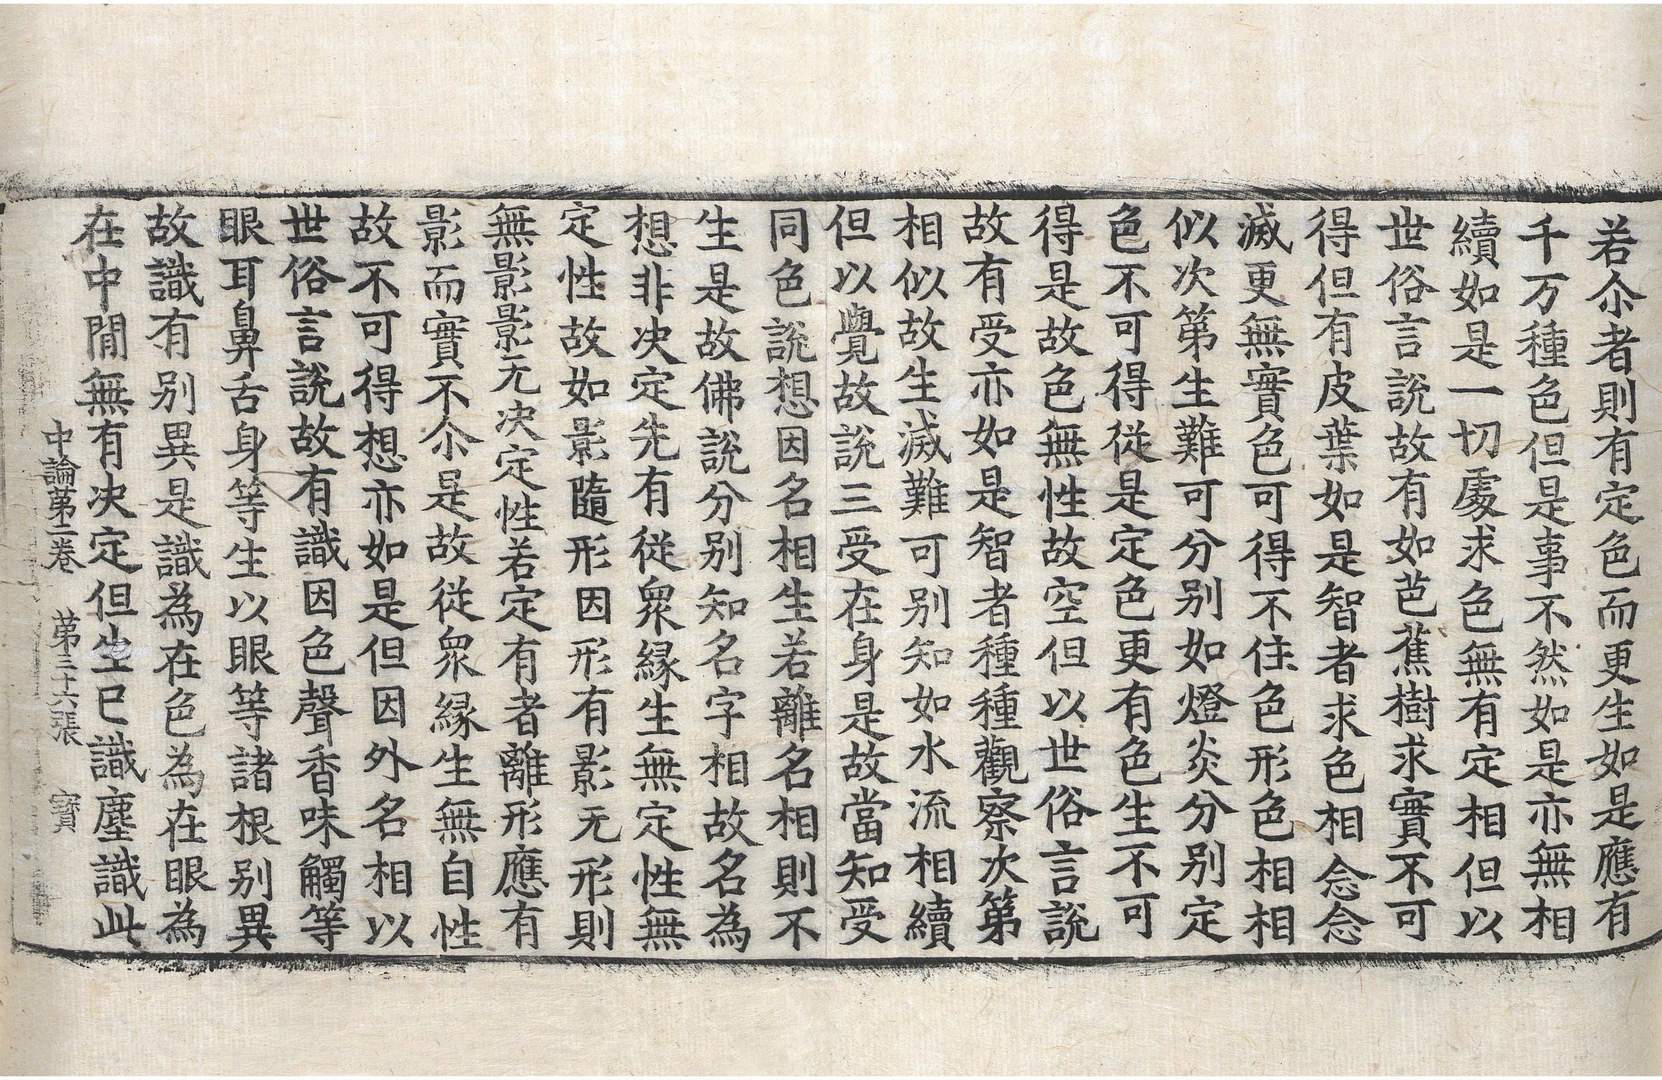 若尒者則有定色而更生如是應有
千万種色但是事不然如是亦無相
續如是一切處求色無有定相但以
世俗言說故有如芭蕉樹求實不可
得但有皮葉如是智者求色相念念
滅更無實色可得不住色形色相相
似次第生難可分別如燈炎分別定
色不可得從是定色更有色生不可
得是故色無性故空但以世俗言說
故有受亦如是智者種種觀察次第
相似故生滅難可別知如水流相續
但以覺故說三受在身是故當知受
同色說想因名相生若離名相則不
生是故佛說分別知名字相故名為
想非决定先有從衆緣生無定性無
定性故如影隨形因形有影无形則
無影影无决定性若定有者離形應有
影而實不尒是故從衆緣生無自性
故不可得想亦如是但因外名相以
世俗言說故有識因色聲香味觸等
眼耳鼻舌身等生以眼等諸根別異
故識有別異是識為在色為在眼為
在中閒無有决定但生已識塵識此
中論第二卷　第三十六張　寶